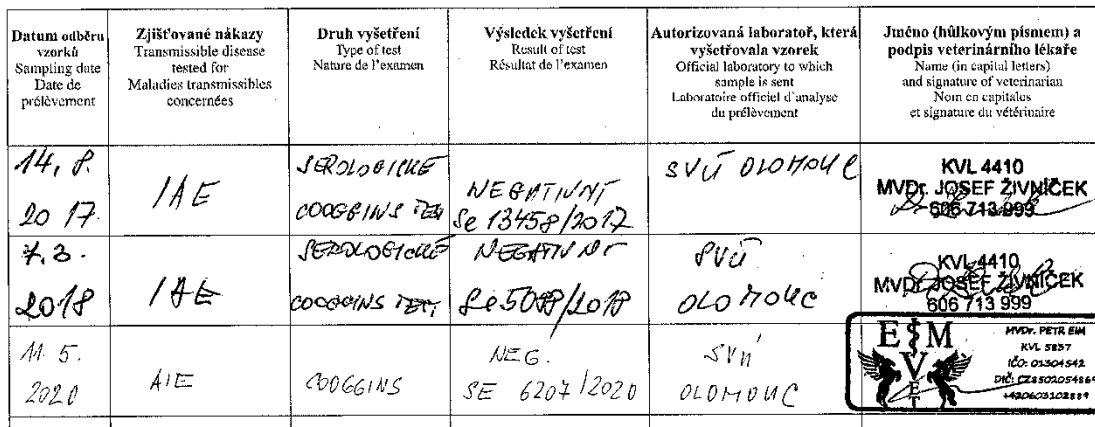 Datum odběru vzorků
Sampling date
Date de prélèvement
Zjišťované nákazy
Transmissible disease tested for
Maladies transmissibles concernées
Druh vyšetření
Type of test
Nature de l'examen
Výsledek vyšetření
Result of test
Résultat de l'examen
Autorizovaná laboratoř, která vyšetřovala vzorek
Official laboratory to which sample is sent
Laboratoire officiel d'analyse du prélèvement
Jméno (hůlkovým písmem) a podpis veterinárního lékaře
Name (in capital letters) and signature of veterinarian
Nom en capitales et signature du vétérinaire
14. 8.
2017
IAE
SEROLOGICKÉ
COGGINS TEST
NEGATIVNÍ
Se 13458/2017
SVÚ OLOMOUC
KVL 4410
MVDr. JOSEF ŽIVNÍČEK
606 713 999
7.3.
2018
IAE
SEROLOGICKÉ
COOGGINS TEST
NEGATIVNÍ
Se 5088/2018
SVÚ
OLOMOUC
KVL 4410
MVDr. JOSEF ŽIVNÍČEK
606 713 999
11. 5.
2020
AIE
COOGGINS
NEG.
SE 6207/2020
SVÚ
OLOMOUC
E M
V
E
T
MVDr. PETR EIM
KVL 5837
IČO: 01304542
DIČ: CZ8502054869
+420603102889